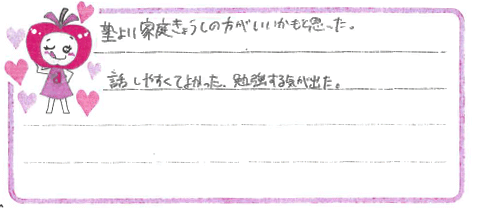 塾より家庭きょうしの方がいいかもと思った。
話しやすくてよかった、勉強する気が出た。
d